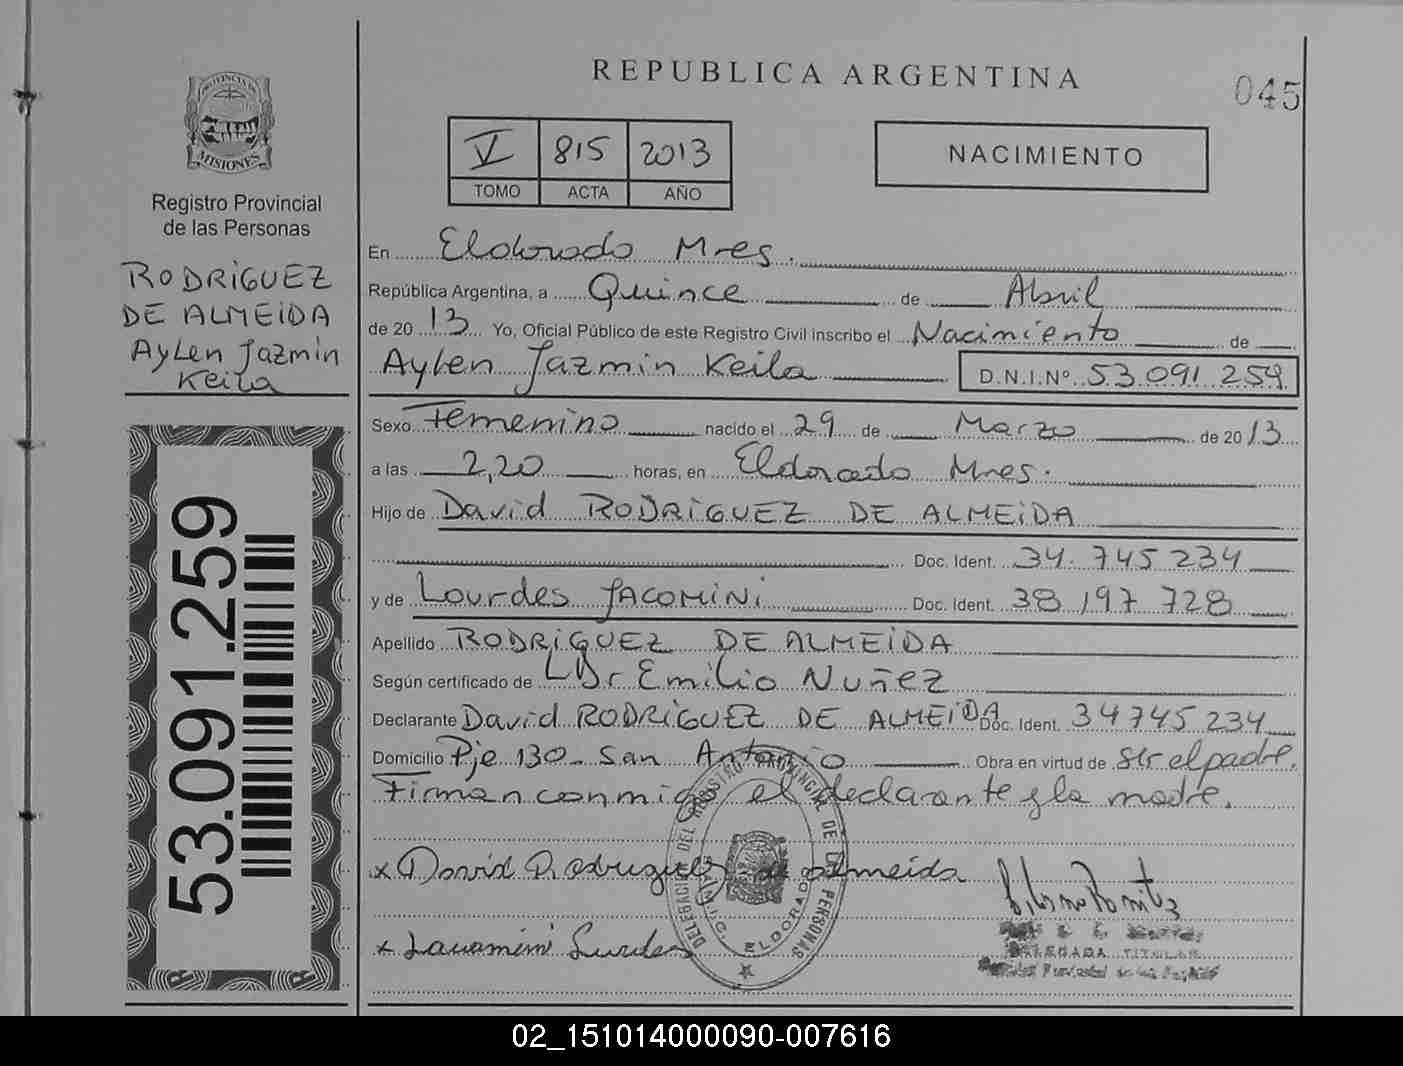 REPUBLICA ARGENTINA
045
PROVINCIA DE
MISIONES
Registro Provincial
de las Personas
RODRIGUEZ
DE ALMEIDA
Aylen Jazmin
Keila
53.091.259
V 815 2013
TOMO ACTA AÑO
NACIMIENTO
En Eldorado Mnes.
República Argentina, a Quince de Abril
de 20 13 Yo, Oficial Público de este Registro Civil inscribo el Nacimiento de
Aylen Jazmin Keila D.N.I.Nº 53 091 259
Sexo Femenino nacido el 29 de Marzo de 20 13
a las 2,20 horas, en Eldorado Mnes.
Hijo de David RODRIGUEZ DE ALMEIDA
Doc. Ident. 34. 745 234
y de Lourdes JACOMINI Doc. Ident. 38 197 728
Apellido RODRIGUEZ DE ALMEIDA
Según certificado de Dr Emilio Nuñez
Declarante David RODRIGUEZ DE ALMEIDA Doc. Ident. 34745 234
Domicilio Pje 130 - San Antonio Obra en virtud de ser el padre.
Firman conmigo el declarante y la madre.
x David Rodriguez de almeida
x Lourdes
DELEGACION DEL REGISTRO PROVINCIAL DE LAS PERSONAS
ELDORADO
DELEGADA TITULAR
02_151014000090-007616